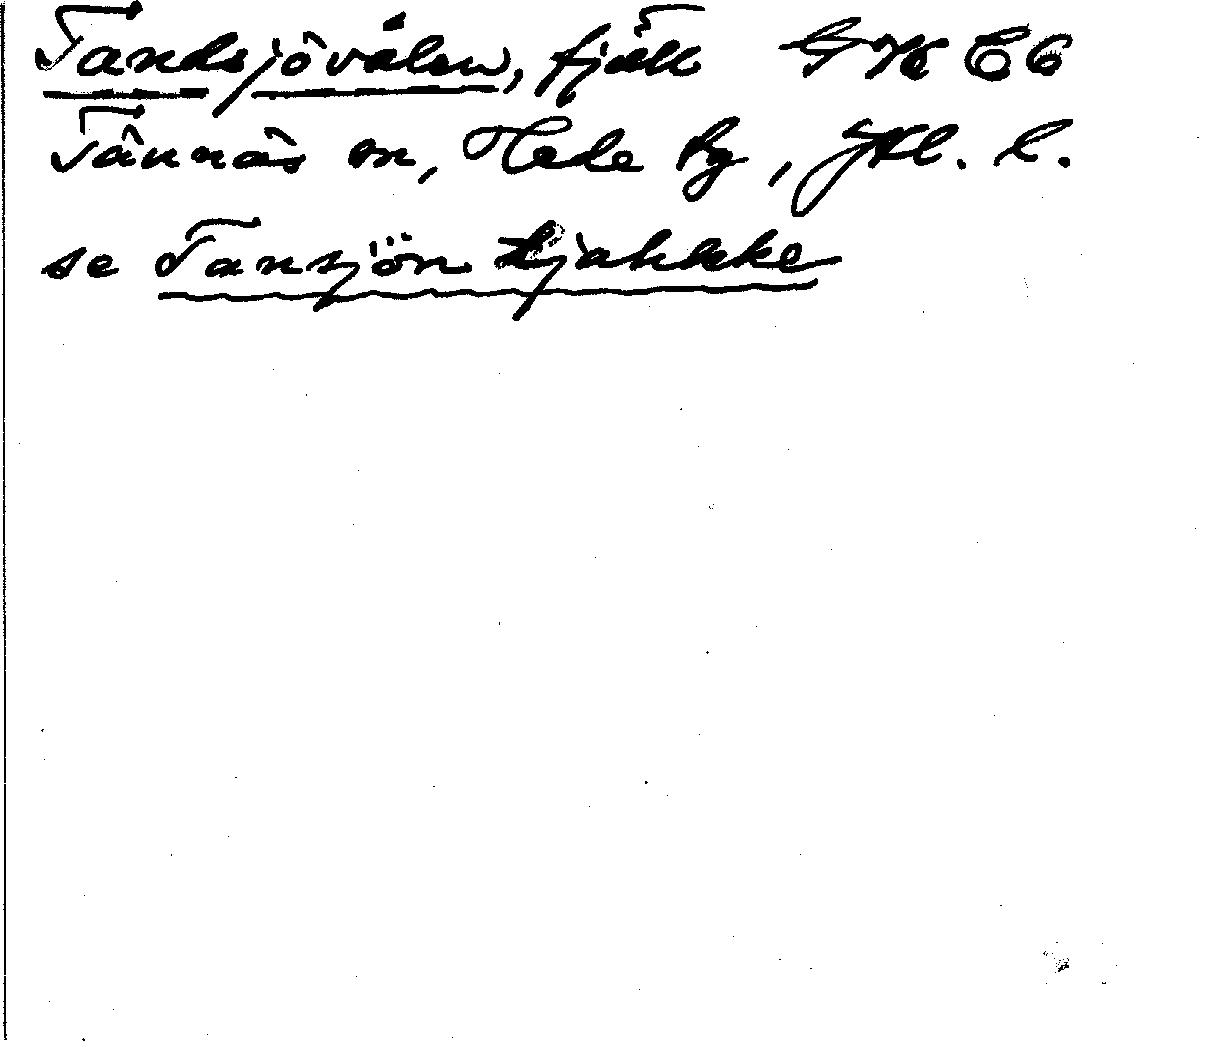 Tandsjövålen, fjäll GK C6
Tännäs sn, Hede tg, Jtl. l.
se Tansjön tjahkke